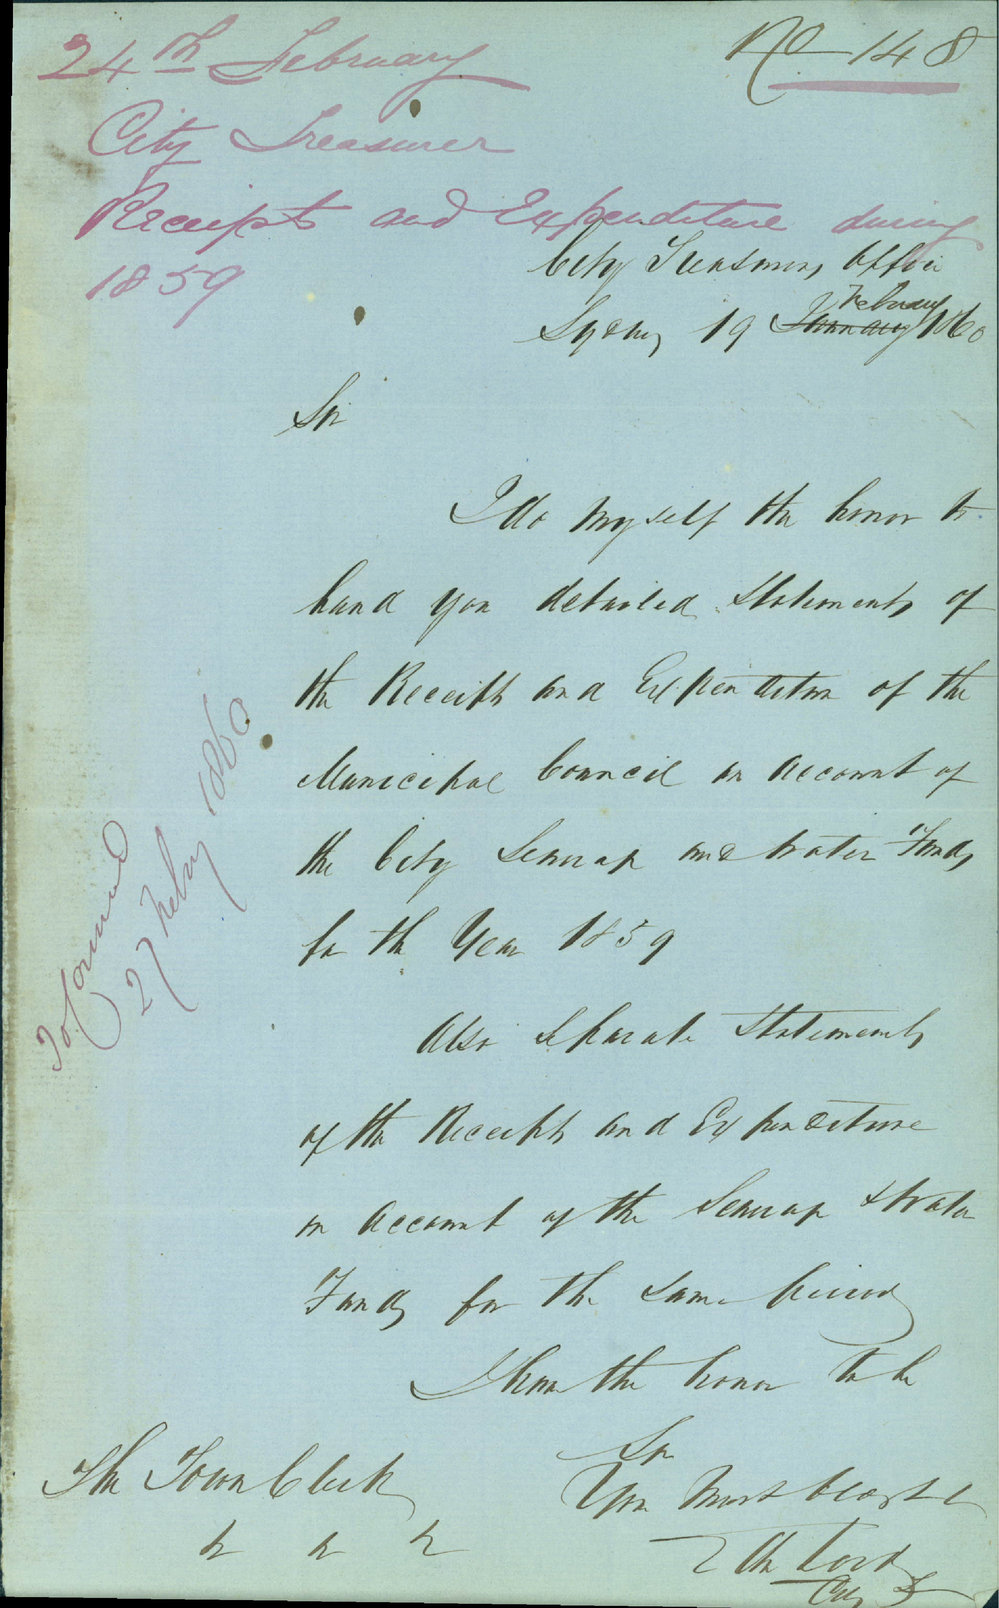 No 148
24th February
City Treasurer
Receipts and Expenditure during
1859
City Treasurers Office
Sydney 19 January February 1860
Sir
I do myself the honor to
hand you detailed Statements of
the Receipts and Expenditure of the
Municipal Council on Account of
the City Sewerage and Water Funds
for the Year 1859
Also Separate Statements
of the Receipts and Expenditure
on Account of the Sewerage & Water
Funds for the same period
I have the honor to be
Sir
Your Most Obedt
City
The Town Clerk
To Council
27 Feby 1860